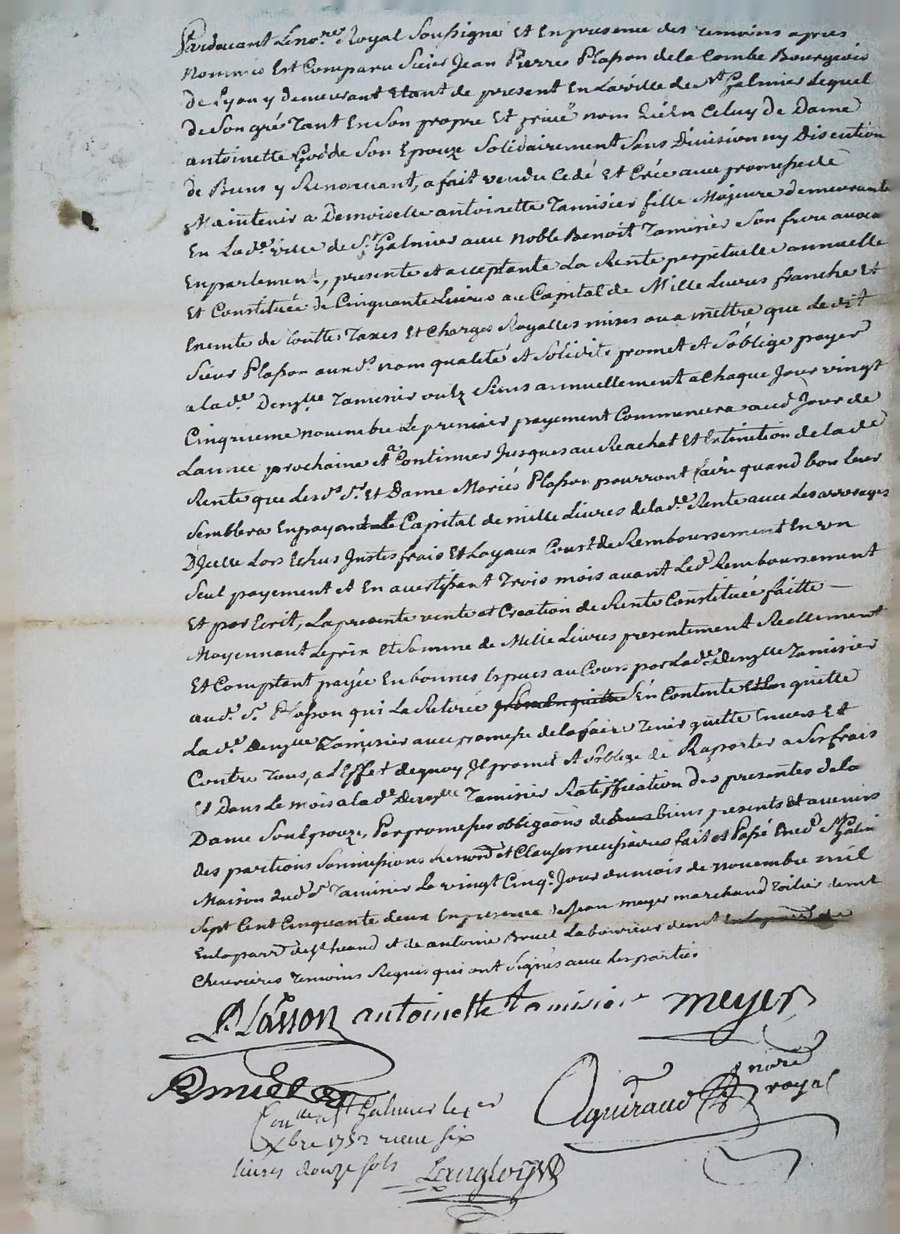 Pardevant Le no.re Royal Soussigné Et En presence des temoins apres
Nommés Est Comparu Sieur Jean Pierre Plasson de la Combe Bourgeois
de Lyon y demeurant Etant de present En La ville de St Galmier Lequel
de Son gré Tant En Son propre Et privé nom qu'En Celuy de Dame
antoinette Son Epouze Solidairement Sans Division ny Discution
de Biens y Renonceant, a fait vendu Cedé Et Créé avec promesse de
Maintenir a Demoiselle antoinette Tamisier fille Majeure demeurante
En Lad.e ville de St Galmier avec noble Benoit Tamisier Son frere avocat
En parlement, presente et acceptante La Rente perpetuelle annuelle
Et Constituée de Cinquante Livres au Capital de Mille Livres franche Et
Exemte de toutte Taxes Et Charges Royalles mises ou a mettre que le dit
Sieur Plasson aux d.s nom qualité et Solidité promet et S'oblige payer
a lad.e Demlle Tamisier ou Siens annuellement a Chaque Jour vingt
Cinquieme novembre Le premier payement Commencera aud. Jour de
L'année prochaine et a Continuer Jusques au Reachat Et Extinction de la de
Rente que Les d.s Sr Et Dame Mariés Plasson pourront faire quand bon Leur
Semblera En payant le Capital de mille Livres de lad.e Rente avec Les arrerages
D'jcelle Lors Echus Justes frais Et Loyaux Cousts de Remboursement En un
Seul payement et En avertissant Trois mois avant Led. Remboursement
Et par Ecrit, La presente vente et Creation de Rente Constituée faitte
Moyennant Le prix Et Somme de Mille Livres presentement Reellement
Et Comptant payée En bonnes Especes au Cours par Lad.e Demlle Tamisier
aud. Sr Plasson qui La Retirée S'En Contente Et En quitte
La d.e Demlle Tamisier avec promesse de la faire Tenir quitte Envers Et
Contre Tous, a L'Effet dequoy Il promet et S'oblige de Raporter a Ses frais
Et Dans Le mois a lad.e Demlle Tamisier Ratiffication des presentes de la
Dame Son Epouze, Par promesses obligaons de biens presents Et avenirs
des partions Sommissions Renonons et Clauses necessaires fait et Passé En ed. St Galmier
Maison dud. Sr Tamisier Le vingt Cinqe Jour du mois de novembre mil
Sept Cent Cinquante deux En presence de Jean meyer marchand toilier demt
En la parr. de St heand Et de antoine Bruel Laboureur demt
Chevrieres temoins Requis qui ont Signés avec Les parties
Plasson antoinette tamisier meyer
Bruel
Aguiraud nore royal
Con.lé a St Galmier le 1er
Xbre 1752 receu six
livres douze sols Langloys